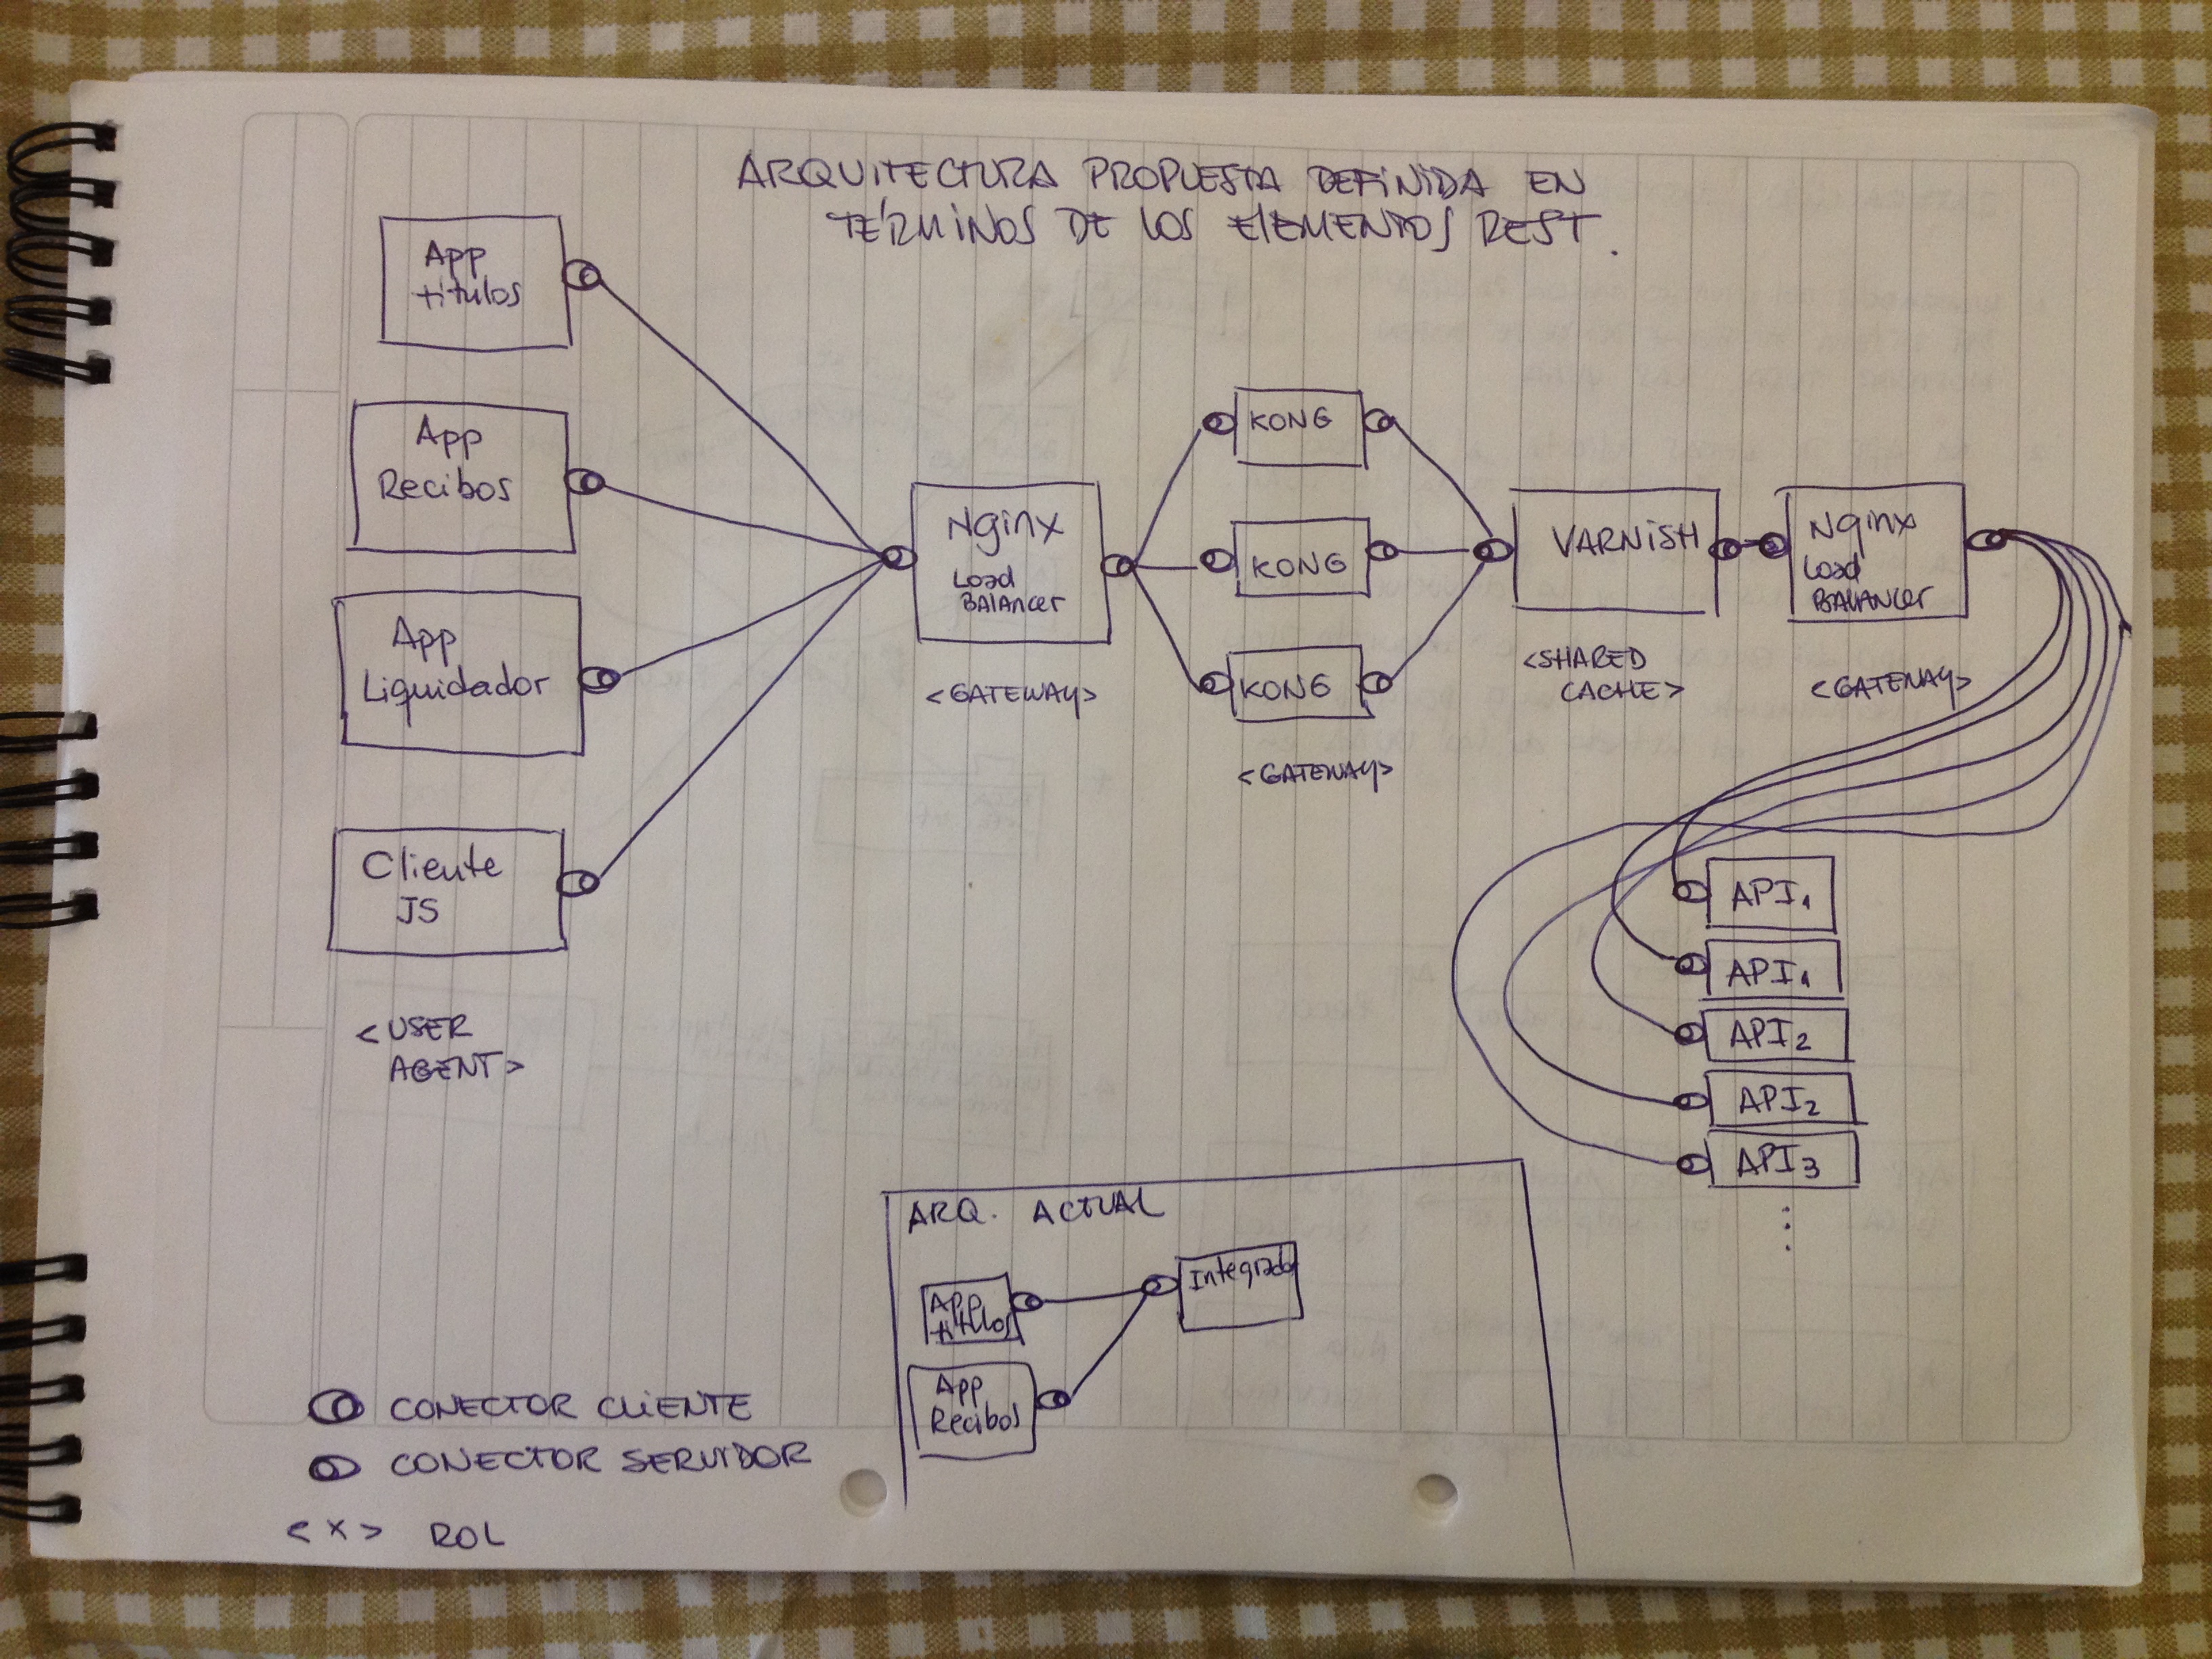 ARQUITECTURA PROPUESTA DEFINIDA EN
TÉRMINOS DE LOS ELEMENTOS REST.
App
titulos
App
Recibos
App
Liquidador
Cliente
JS
<USER
AGENT>
Nginx
Load
BALANCER
<GATEWAY>
KONG
KONG
KONG
<GATEWAY>
VARNISH
<SHARED
CACHE>
Nginx
Load
BALANCER
<GATEWAY>
API1
API1
API2
API2
API3
⋮
ARQ. ACTUAL
App
titulos
App
Recibos
Integrador
CONECTOR CLIENTE
CONECTOR SERVIDOR
<x> ROL